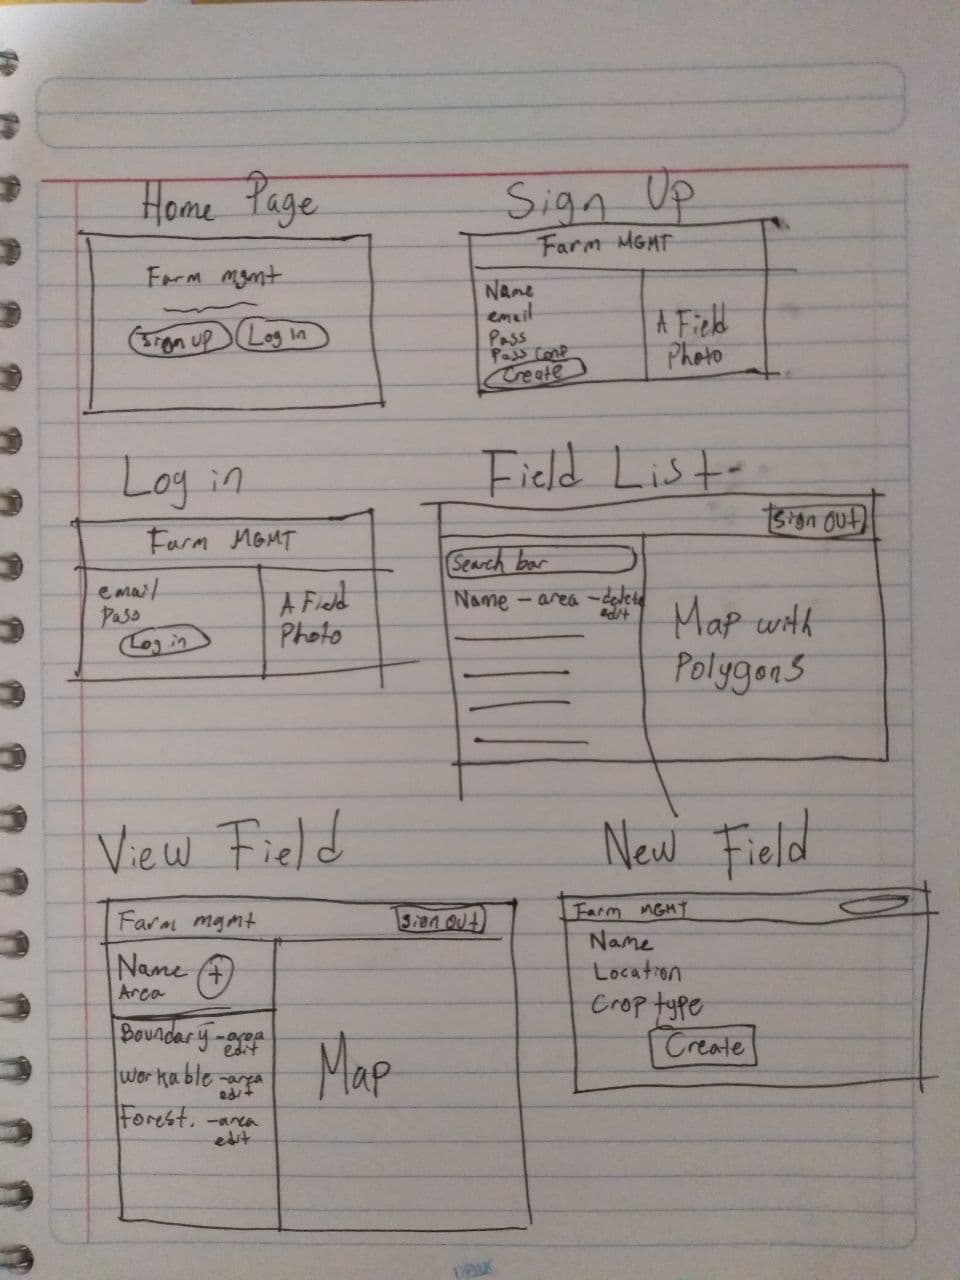 Home Page
Farm mgmt
Sign up
Log in
Sign Up
Farm MGMT
Name
email
Pass
Pass conf
Create
A Field
Photo
Log in
Farm MGMT
email
Pass
Log in
A Field
Photo
Field List
Sign out
Search bar
Name - area - delete
edit
Map with
Polygons
View Field
Farm mgmt
Sign out
Name +
Area
Boundary - area
edit
workable - area
edit
Forest. - area
edit
Map
New Field
Farm MGMT
Name
Location
Crop type
Create